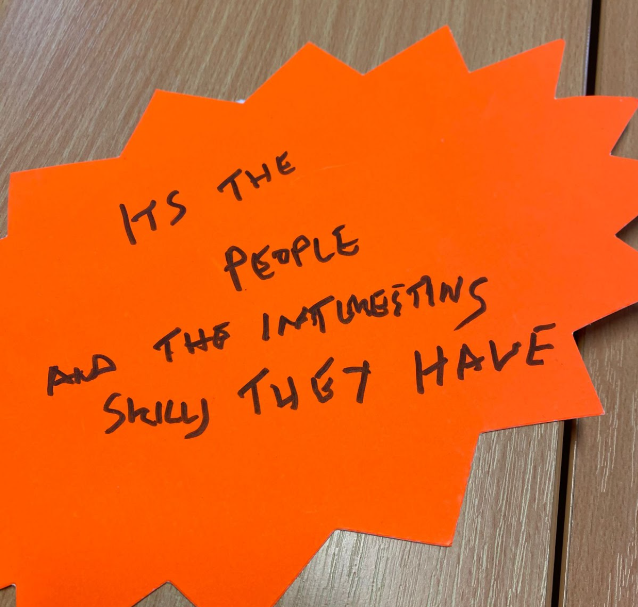 ITS THE
PEOPLE
AND THE INTURESTING
SKILLS THEY HAVE